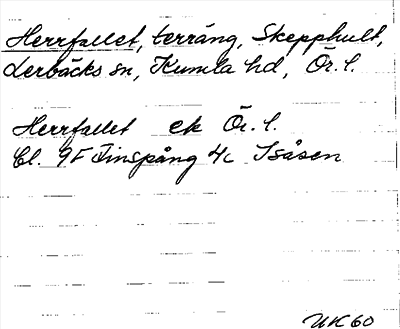 Herrfallet, terräng, Skepphult,
Lerbäcks sn, Kumla hd, Ör. l.
Herrfallet ek Ör. l.
Bl. 9F Finspång 4c Isåsen
UK60